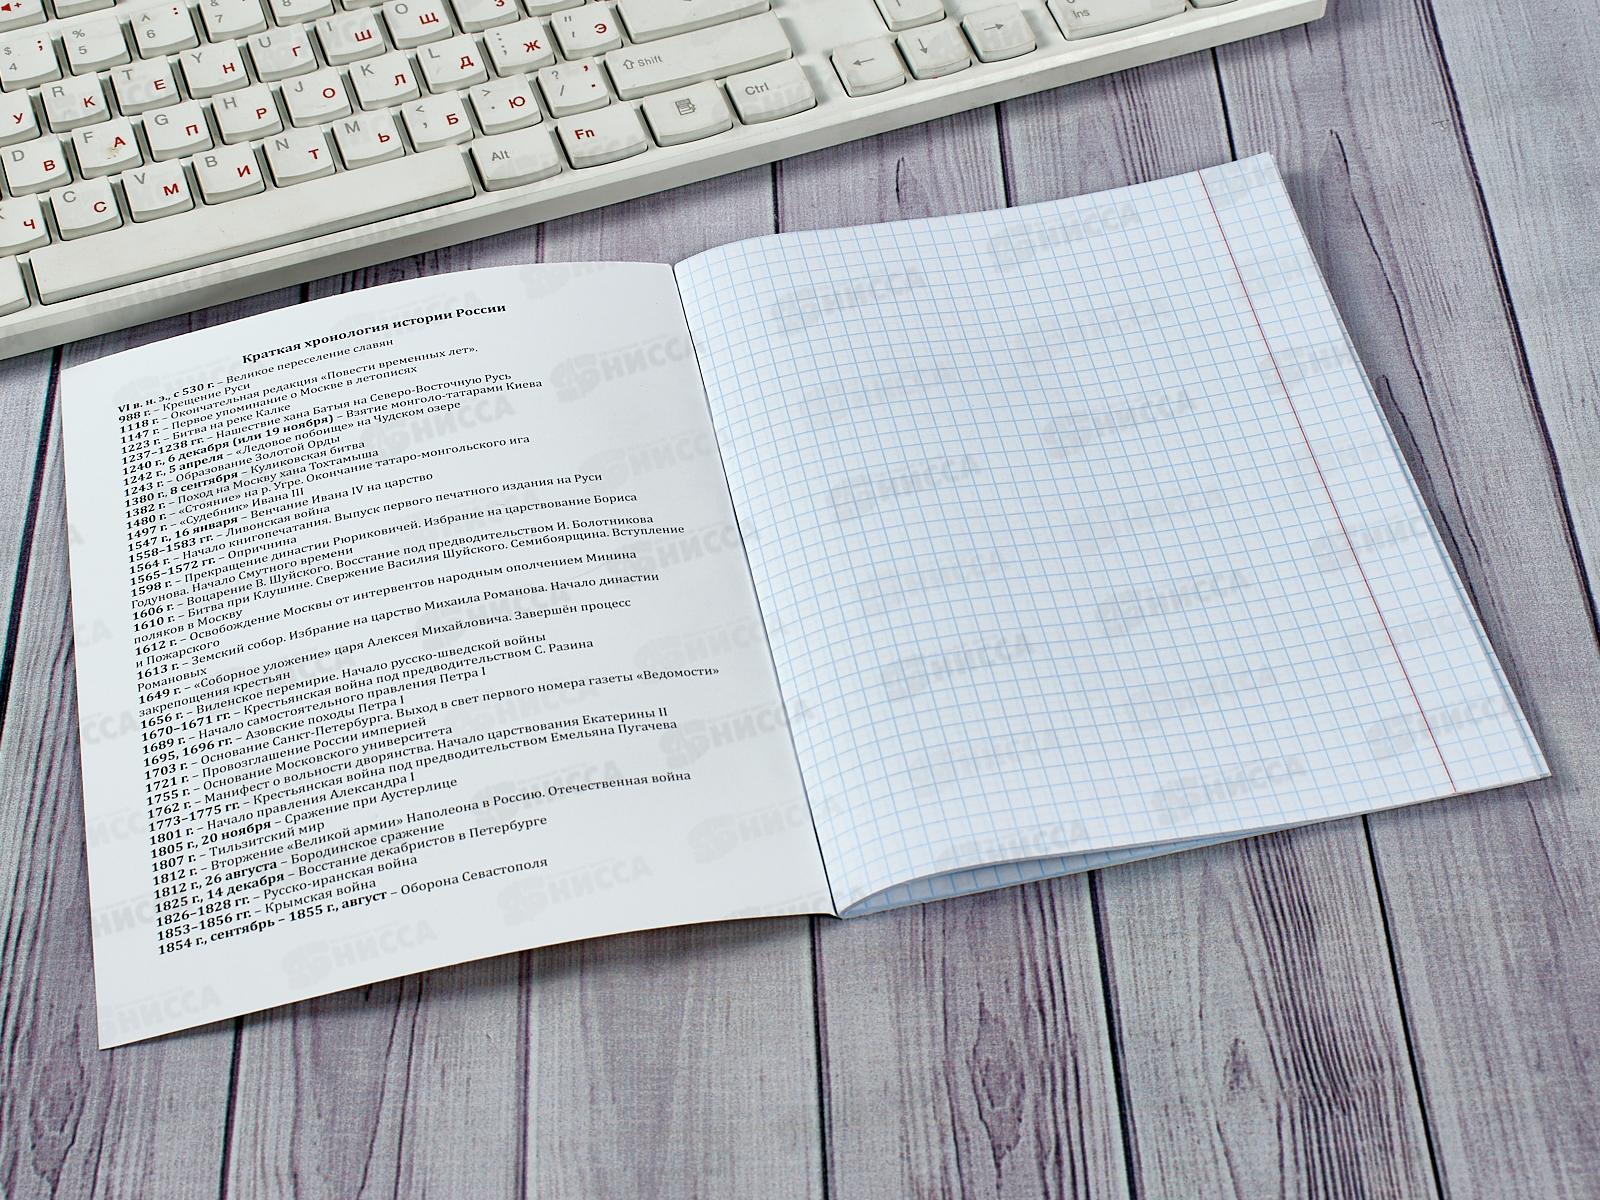 Краткая хронология истории России
VI в. н. э., с 530 г. – Великое переселение славян
988 г. – Крещение Руси
1118 г. – Окончательная редакция «Повести временных лет».
1147 г. – Первое упоминание о Москве в летописях
1223 г. – Битва на реке Калке
1237–1238 гг. – Нашествие хана Батыя на Северо-Восточную Русь
1240 г., 6 декабря (или 19 ноября) – Взятие монголо-татарами Киева
1242 г., 5 апреля – «Ледовое побоище» на Чудском озере
1243 г. – Образование Золотой Орды
1380 г., 8 сентября – Куликовская битва
1382 г. – Поход на Москву хана Тохтамыша
1480 г. – «Стояние» на р. Угре. Окончание татаро-монгольского ига
1497 г. – «Судебник» Ивана III
1547 г., 16 января – Венчание Ивана IV на царство
1558–1583 гг. – Ливонская война
1564 г. – Начало книгопечатания. Выпуск первого печатного издания на Руси
1565–1572 гг. – Опричнина
1598 г. – Прекращение династии Рюриковичей. Избрание на царствование Бориса
Годунова. Начало Смутного времени
1606 г. – Воцарение В. Шуйского. Восстание под предводительством И. Болотникова
1610 г. – Битва при Клушине. Свержение Василия Шуйского. Семибоярщина. Вступление
поляков в Москву
1612 г. – Освобождение Москвы от интервентов народным ополчением Минина
и Пожарского
1613 г. – Земский собор. Избрание на царство Михаила Романова. Начало династии
Романовых
1649 г. – «Соборное уложение» царя Алексея Михайловича. Завершён процесс
закрепощения крестьян
1656 г. – Виленское перемирие. Начало русско-шведской войны
1670–1671 гг. – Крестьянская война под предводительством С. Разина
1689 г. – Начало самостоятельного правления Петра I
1695, 1696 гг. – Азовские походы Петра I
1703 г. – Основание Санкт-Петербурга. Выход в свет первого номера газеты «Ведомости»
1721 г. – Провозглашение России империей
1755 г. – Основание Московского университета
1762 г. – Манифест о вольности дворянства. Начало царствования Екатерины II
1773–1775 гг. – Крестьянская война под предводительством Емельяна Пугачева
1801 г. – Начало правления Александра I
1805 г., 20 ноября – Сражение при Аустерлице
1807 г. – Тильзитский мир
1812 г. – Вторжение «Великой армии» Наполеона в Россию. Отечественная война
1812 г., 26 августа – Бородинское сражение
1825 г., 14 декабря – Восстание декабристов в Петербурге
1826–1828 гг. – Русско-иранская война
1853–1856 гг. – Крымская война
1854 г., сентябрь – 1855 г., август – Оборона Севастополя
$ 4 ; % 5 ^ 6 : & ? Ins
R К T Е Y Н U Г I Ш O Щ З
У D В F А G П H Р J О K Л L Д ; Ж " Э Shift
Ч C С V М B И N Т M Ь < , Б > . Ю ? / . Ctrl
Alt Fn
НИССА